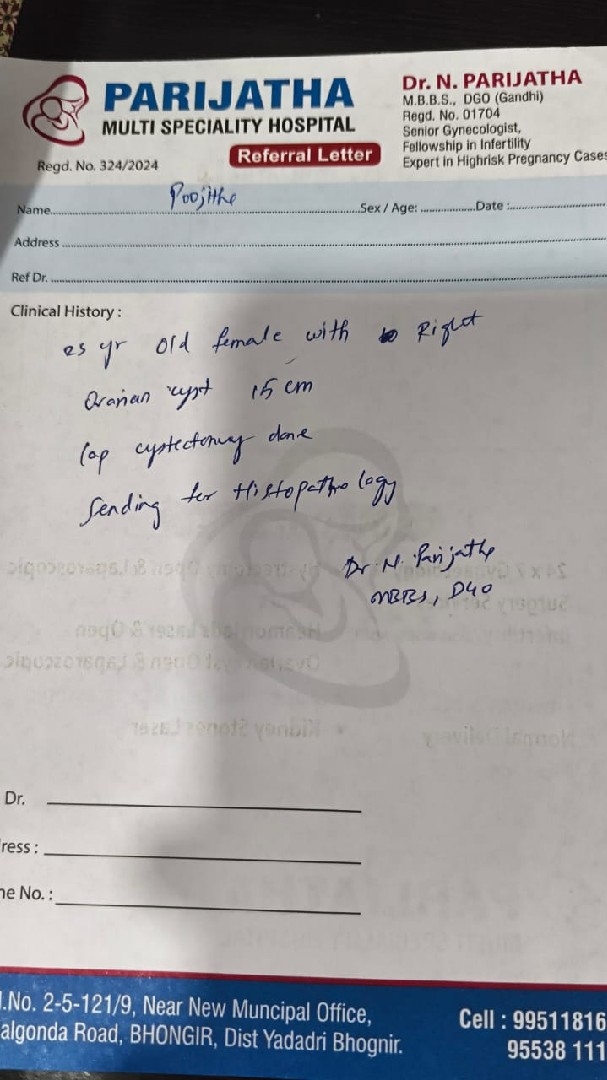 PARIJATHA
MULTI SPECIALITY HOSPITAL
Regd. No. 324/2024
Referral Letter
Dr. N. PARIJATHA
M.B.B.S., DGO (Gandhi)
Regd. No. 01704
Senior Gynecologist,
Fellowship in Infertility
Expert in Highrisk Pregnancy Cases
Name Poojitha Sex / Age: Date :
Address
Ref Dr.
Clinical History :
25 yr old female with Right
Ovarian cyst 15 cm
lap cystectomy done
Sending for Histopathology
Dr. N. Parijatha
MBBS, DGO
Dr.
ress :
ne No. :
.No. 2-5-121/9, Near New Muncipal Office,
algonda Road, BHONGIR, Dist Yadadri Bhognir.
Cell : 99511816
95538 111